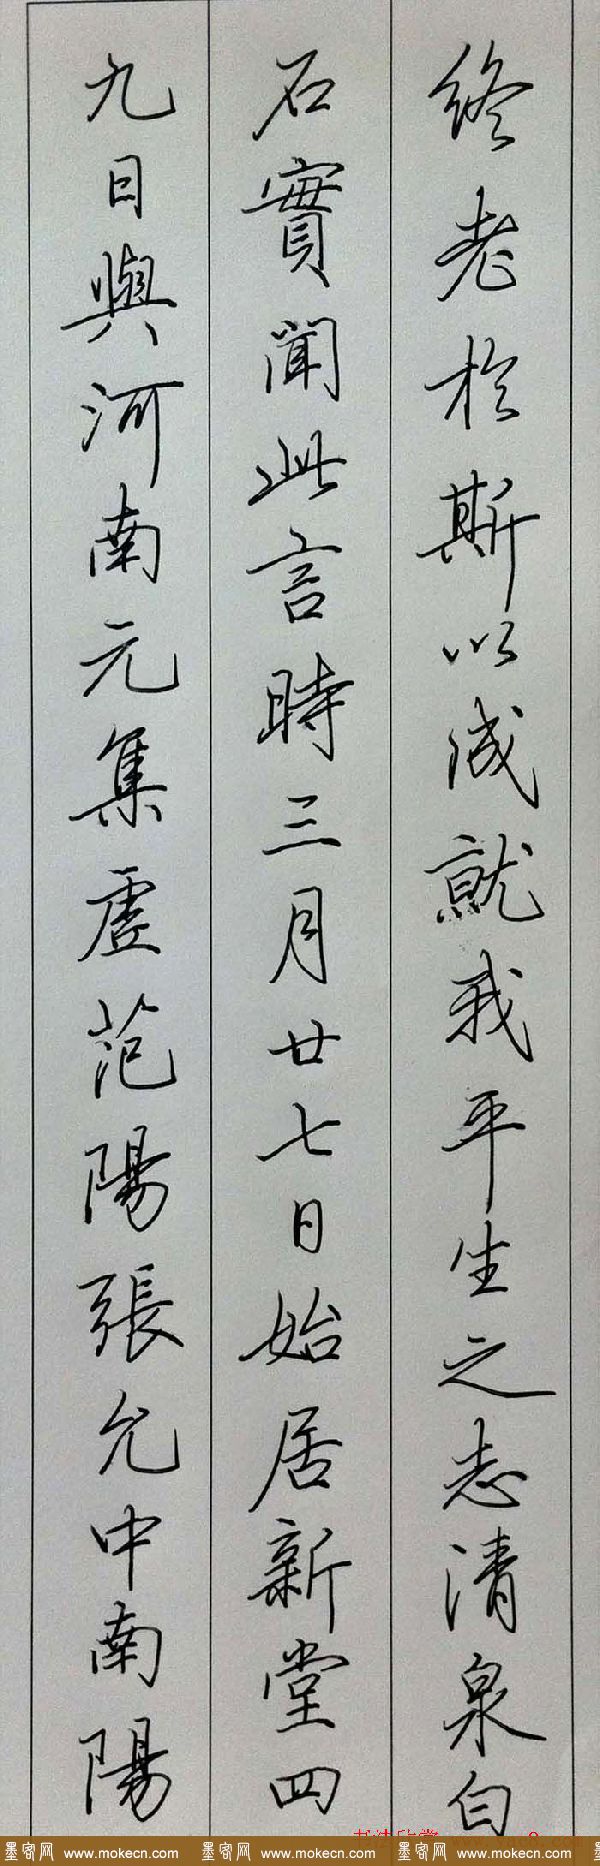 終老於斯以成就我平生之志清泉白
石實聞此言時三月廿七日始居新堂四
九日與河南元集虛范陽張允中南陽
墨客网 www.mokecn.com 墨客网 www.mokecn.com 墨客网 www.mokecn.com